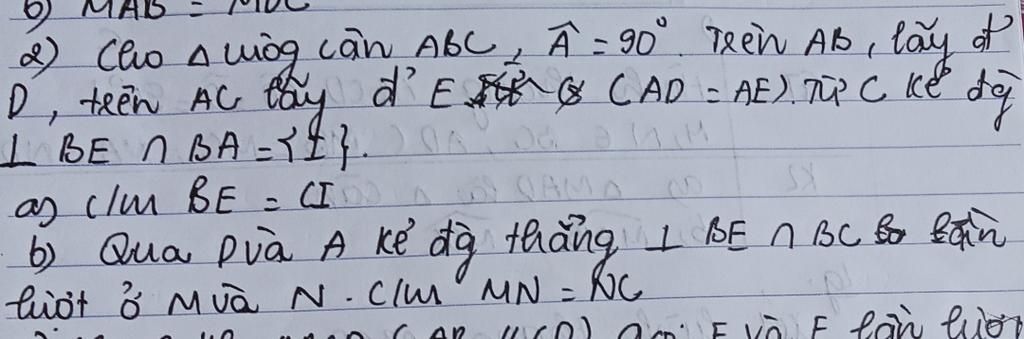 b) MAB = MDC
2) Cho Δ vuông cân ABC, Â = 90°. Trên AB, lấy đ'
D, trên AC lấy đ' E (AD = AE). Từ C kẻ đg
⊥ BE ∩ BA = {I}.
a) C/m BE = CI
b) Qua D và A kẻ đg thẳng ⊥ BE ∩ BC lần
lượt ở M và N. C/m MN = NC
(AB // CD) E và F lần lượt